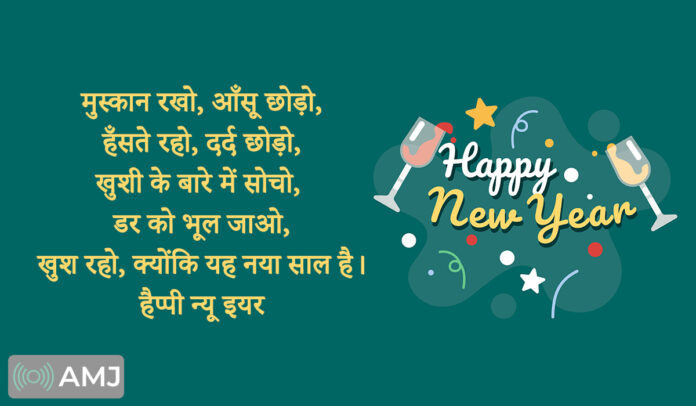 मुस्कान रखो, आँसू छोड़ो,
हँसते रहो, दर्द छोड़ो,
खुशी के बारे में सोचो,
डर को भूल जाओ,
खुश रहो, क्योंकि यह नया साल है।
हैप्पी न्यू इयर
Happy
New Year
AMJ